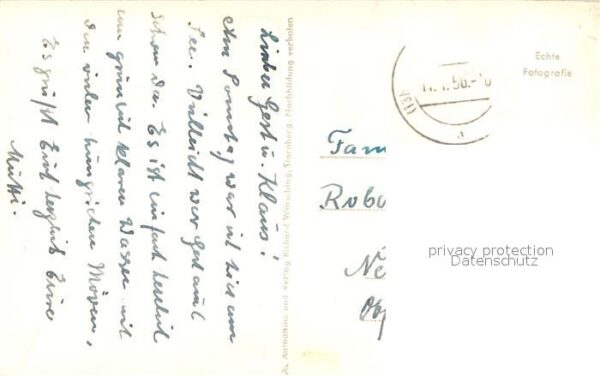 Liebe Gert u. Klaus!
Am Sonntag war ich hier am
See. Vielleicht war Gert auch
schon da. Es ist einfach herrlich
am grün und klaren Wasser mit
den vielen hungrichen Möven,
Es grüßt Euch herzlich Eure
Mutti.
Aufnahme und Verlag Richard Wörsching, Starnberg, Nachbildung verboten
Echte
Fotografie
Fam
Robe
Ne
Ob
privacy protection
Datenschutz